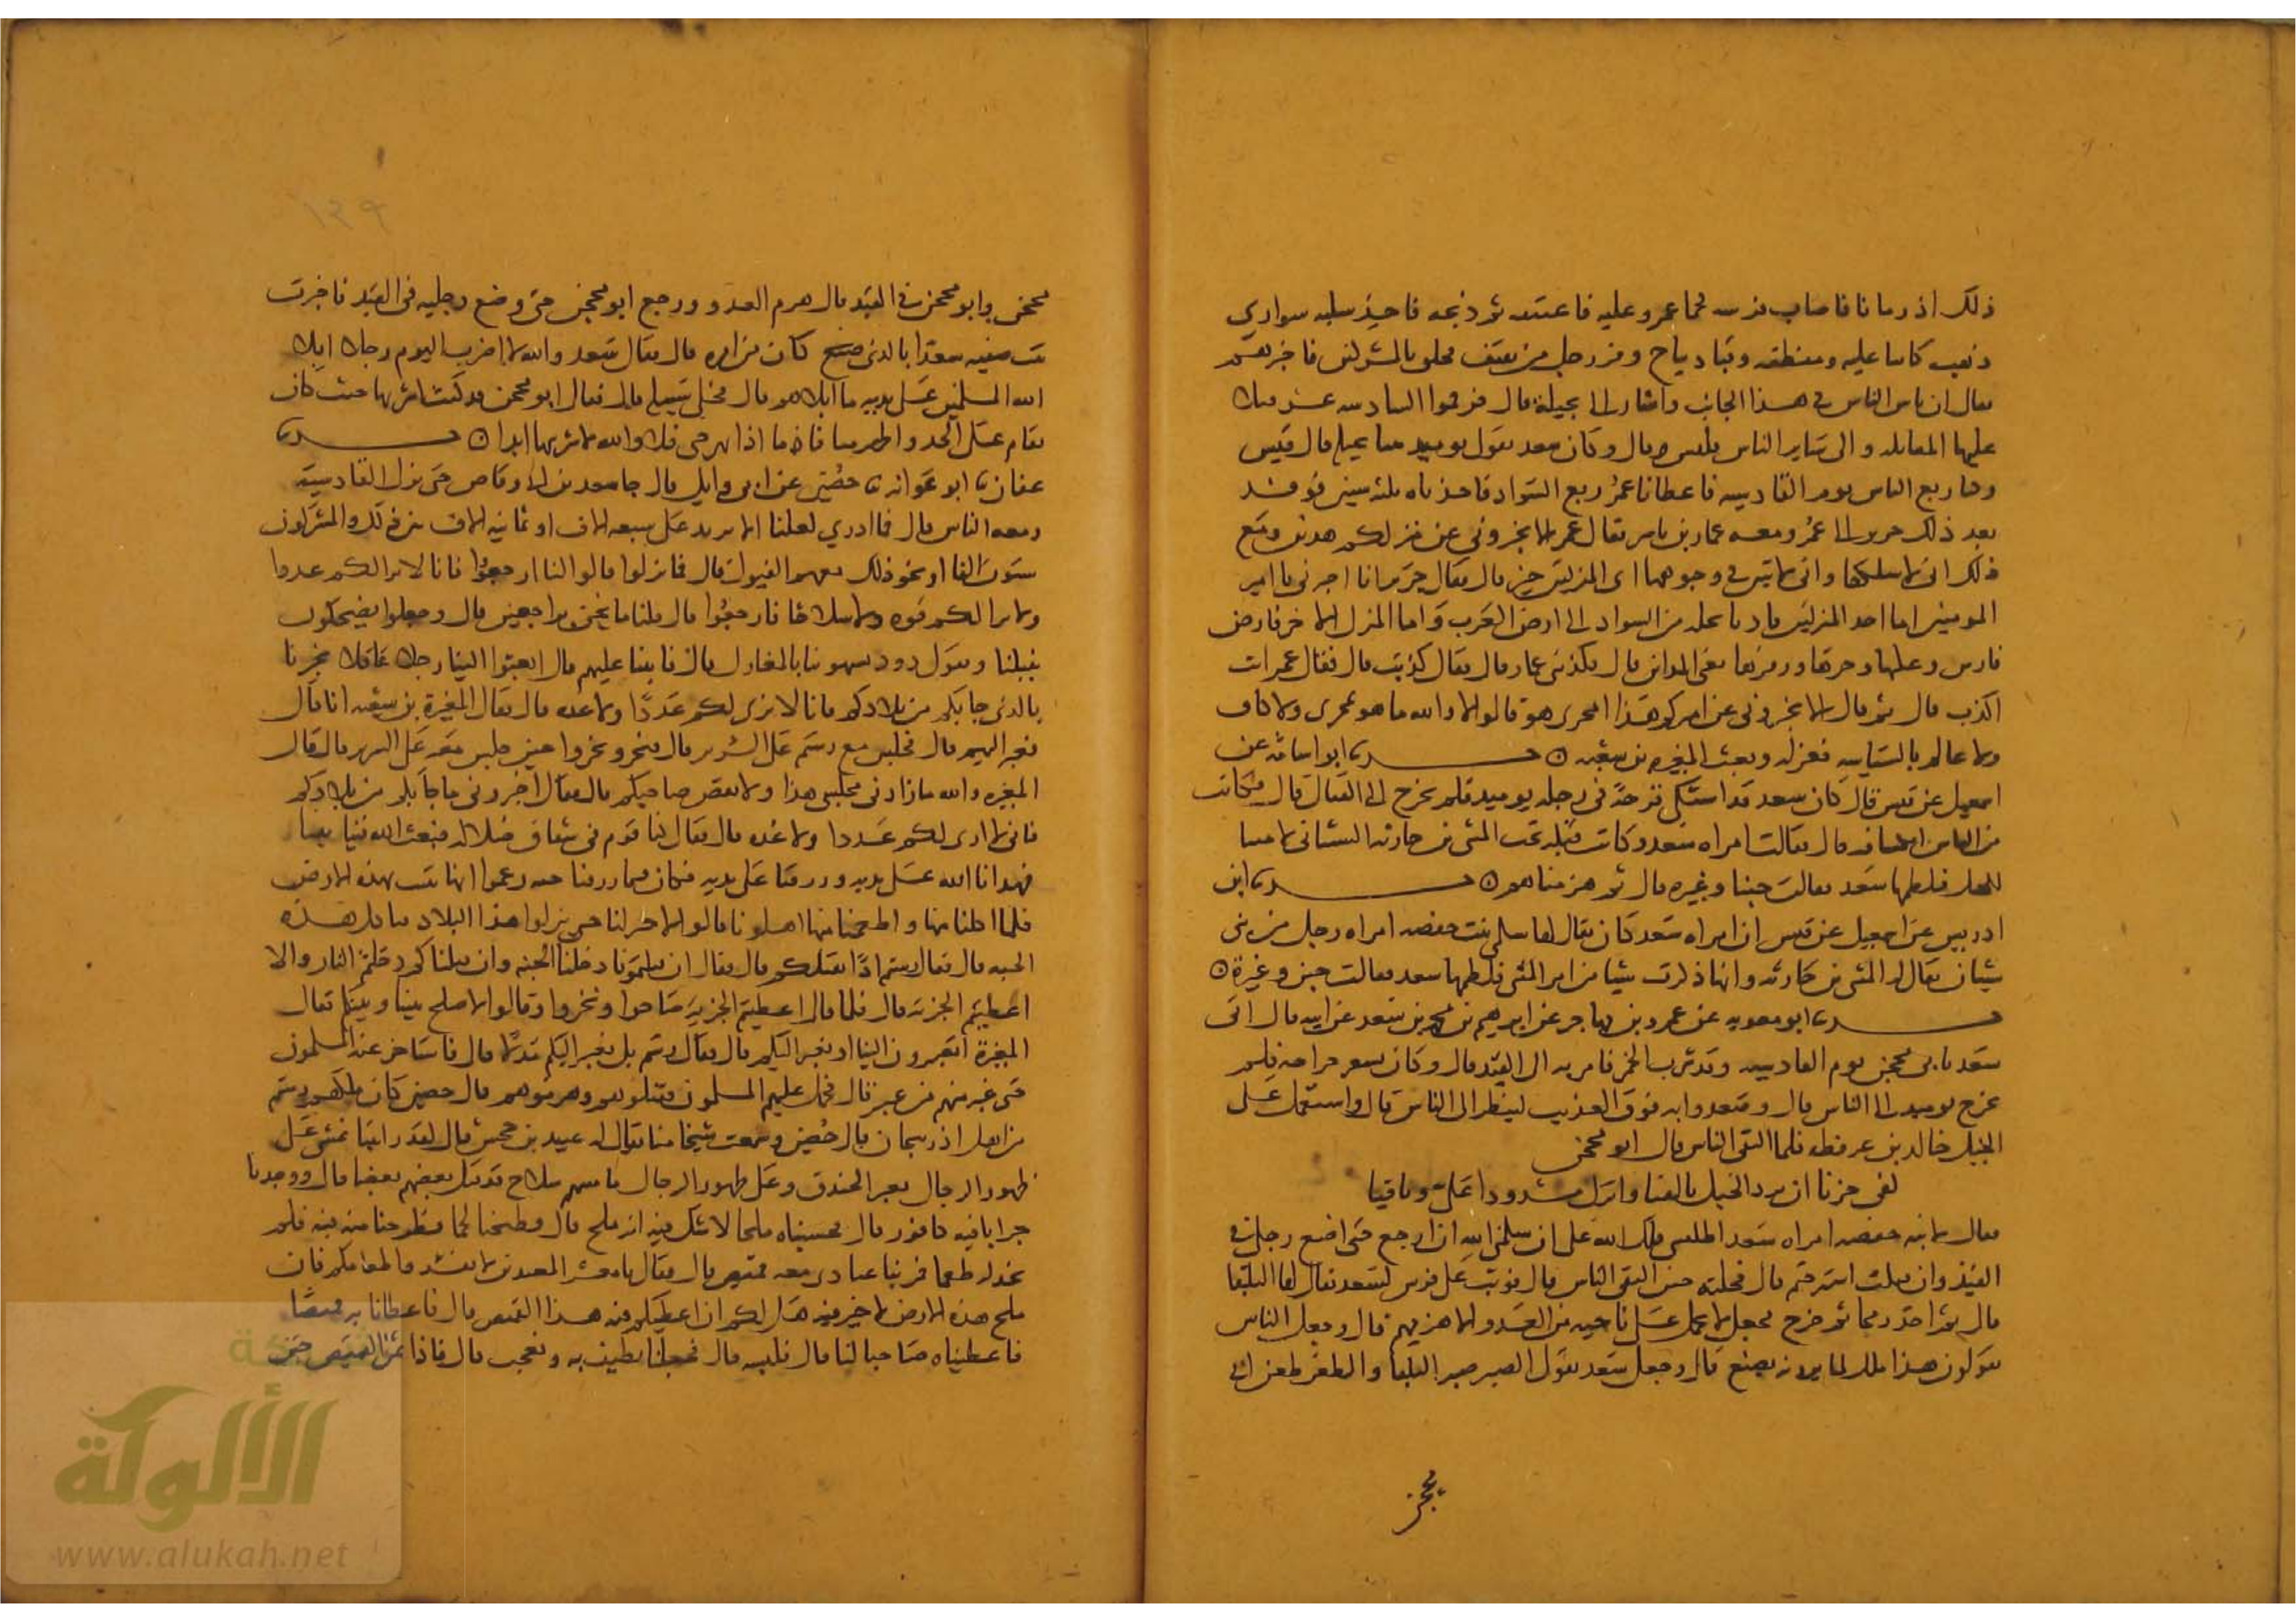 ذلك اذ رمانا فاصاب فرسه فحما عمرو عليه فاعتنقه ثم ذبحه فاخذ سلبه سواري
ذهب كانا عليه ومنطقه وقبا ديباج وفر رجل من ثقيف فخلى بالمشركين فاخبرهم
فقال ان باس الناس في هذا الجانب واشار الى بجيلة قال فرموا الينا سته عشر فيلا
عليها المقاتله والى ساير الناس بفيلين قال وكان سعد يقول يوميذ سا بجيله قال قيس
وكنا ربع الناس يوم القادسيه فاعطانا عمر ربع السواد فاخذناه ثلث سنين فوفد
بعد ذلك جرير الى عمر ومعه عمار بن ياسر فقال عمر الا تخبروني عن منزليكم هذين ومع
ذلك اني لاسلكما واني لاتبين في وجوهكما اي المنزلين خير قال فقال جرير انا اخبرك يا امير
المومنين اما احد المنزلين فادنا نخله من السواد الى ارض العرب واما المنزل الاخر فارض
فارس وعكها وحرها وبقها يعني المداين قال فكذبني عمار قال فقال كذبت قال فقال عمر انت
اكذب قال ثم قال الا تخبروني عن اميركم هذا امجزي هو قالوا لا والله ما هو بمجزي ولا كاف
ولا عالم بالسياسه فعزله وبعث المغيره بن شعبه ن حدثنا ابو اسامه عن
اسمعيل عن قيس قال كان سعد قد اشتكى قرحة في رجله يوميذ فلم يخرج الى القتال قال فكانت
من الناس انكشافه قال فقالت امراه سعد وكانت قبله تحت المثنى بن حارثه الشيباني لا مثنا
للخيل فلطمها سعد فقالت جبنا وغيره قال ثم هزمناهم ن حدثنا ابن
ادريس عن اسمعيل عن قيس ان امراه سعد كان يقال لها سلمى بنت خصفه امراه رجل من بني
شيبان يقال له المثنى بن حارثه وانها ذكرت شيا من امر المثنى فلطمها سعد فقالت جبن وغيرة ن
حدثنا ابو معويه عن عمرو بن مهاجر عن ابرهيم بن محمد بن سعد عن ابيه قال اتى
سعد بابي محجن يوم القادسيه وقد شرب الخمر فامر به الى القيد قال وكان بسعد جراحه فلم
يخرج يوميذ الى الناس قال وصعدوا به فوق العذيب لينظر الى الناس قال واستعمل على
الخيل خالد بن عرفطه فلما التقى الناس قال ابو محجن
كفى حزنا ان تردى الخيل بالقنا واترك مشدودا علي وثاقيا
فقال لابنه خصفه امراه سعد اطلقيني ولك الله على ان سلمني الله ان ارجع حتى اضع رجلي في
القيد وان قتلت استرحتم قال فحلته حين التقى الناس قال فوثب على فرس لسعد يقال لها البلقا
قال ثم اخذ رمحا ثم خرج فجعل لا يحمل على ناحيه من العدو الا هزمهم قال وجعل الناس
يقولون هذا ملك لما يرونه يصنع قال وجعل سعد يقول الضبر ضبر البلقا والطعن طعن ابي
محجن
محجن وابو محجن في القيد قال هزم العدو ورجع ابو محجن حتى وضع رجليه في القيد فاخبرت
بنت خصفه سعدا بالذي صنع كان من امره قال فقال سعد والله لا اضرب اليوم رجلا ابلى
الله المسلمين على يديه ما ابلاهم قال فخلى سبيله قال فقال ابو محجن قد كنت اشربها حيث كان
يقام على الحد واطهر منها فاما اذا بهرجتني فلا والله لا اشربها ابدا ن حدثنا
عفان ثنا ابو عوانه ثنا حصين عن ابي وايل قال جا سعد بن ابي وقاص حتى نزل القادسيه
ومعه الناس قال فما ادري لعلنا الا نزيد على سبعه الاف او ثمانيه الاف بين ذلك والمشركون
ستون الفا او نحو ذلك معهم الفيول قال فلما نزلوا قالوا لنا ارجعوا فانا لا نرا لكم عددا
ولا نرا لكم قوه ولا سلاحا فارجعوا قال قلنا ما نحن براجعين قال وجعلوا يضحكون
بنبلنا ويقول دوك يشبهونها بالمغازل قال فلما ابينا عليهم قال ابعثوا الينا رجلا عاقلا يخبرنا
بالذي جا بكم من بلادكم فانا لا نرى لكم عددا ولا عده قال فقال المغيرة بن شعبه انا قال
فعبر اليهم قال فجلس مع رستم على السرير قال فنخر ونخروا حين جلس معه على السرير قال قال
المغيره والله ما زادني مجلسي هذا ولا نقص صاحبكم قال فقال اخبروني ما جا بكم من بلادكم
فاني لا ارى لكم عددا ولا عده قال فقال كنا قوم في شقا وضلاله فبعث الله فينا نبينا
فهدانا الله على يديه ورزقنا على يديه فكان فيما رزقنا حبه زعموا انها تنبت بهذه الارض
فلما اكلنا منها واطعمنا منها اهلونا قالوا لا خير لنا حتى تنزلوا هذا البلاد فناكل هذه
الحبه قال فقال رستم اذا نقتلكم قال فقال ان قتلتمونا دخلنا الجنه وان قتلناكم دخلتم النار والا
اعطيتم الجزيه قال فلما قال اعطيتم الجزيه صاحوا ونخروا وقالوا لا صلح بيننا وبينكم فقال
المغيرة اتعبرون الينا او نعبر اليكم قال فقال رستم بل نعبر اليكم قال فاستاخر عنه المسلمون
حتى عبر منهم من عبر قال فحمل عليهم المسلمون فقتلوهم وهزموهم قال حصين كان ملكهم رستم
من اهل اذربيجان قال حصين وسمعت شيخا منا يقال له عبيد بن جحش قال لقد رايتنا نمشي على
ظهور الرجال نعبر الخندق وعلى ظهور الرجال ما مسهم سلاح قد قتل بعضهم بعضا قال ووجدنا
جرابا فيه كافور قال فحسبناه ملحا لا نشك فيه انه ملح قال فطبخنا لحما فطرحنا منه فيه فلم
نجد له طعما فمر بنا عبادي معه قميص قال فقال يا معشر المعربين لا تفسدوا طعامكم فان
ملح هذه الارض لا خير فيه هل لكم ان اعطيكم فيه هذا القميص قال فاعطانا به قميصا
فاعطيناه صاحبا لنا قال فلبسه قال فجعلنا نطيف به ونعجب قال فاذا ثمن القميص حين
الألوكة
www.alukah.net